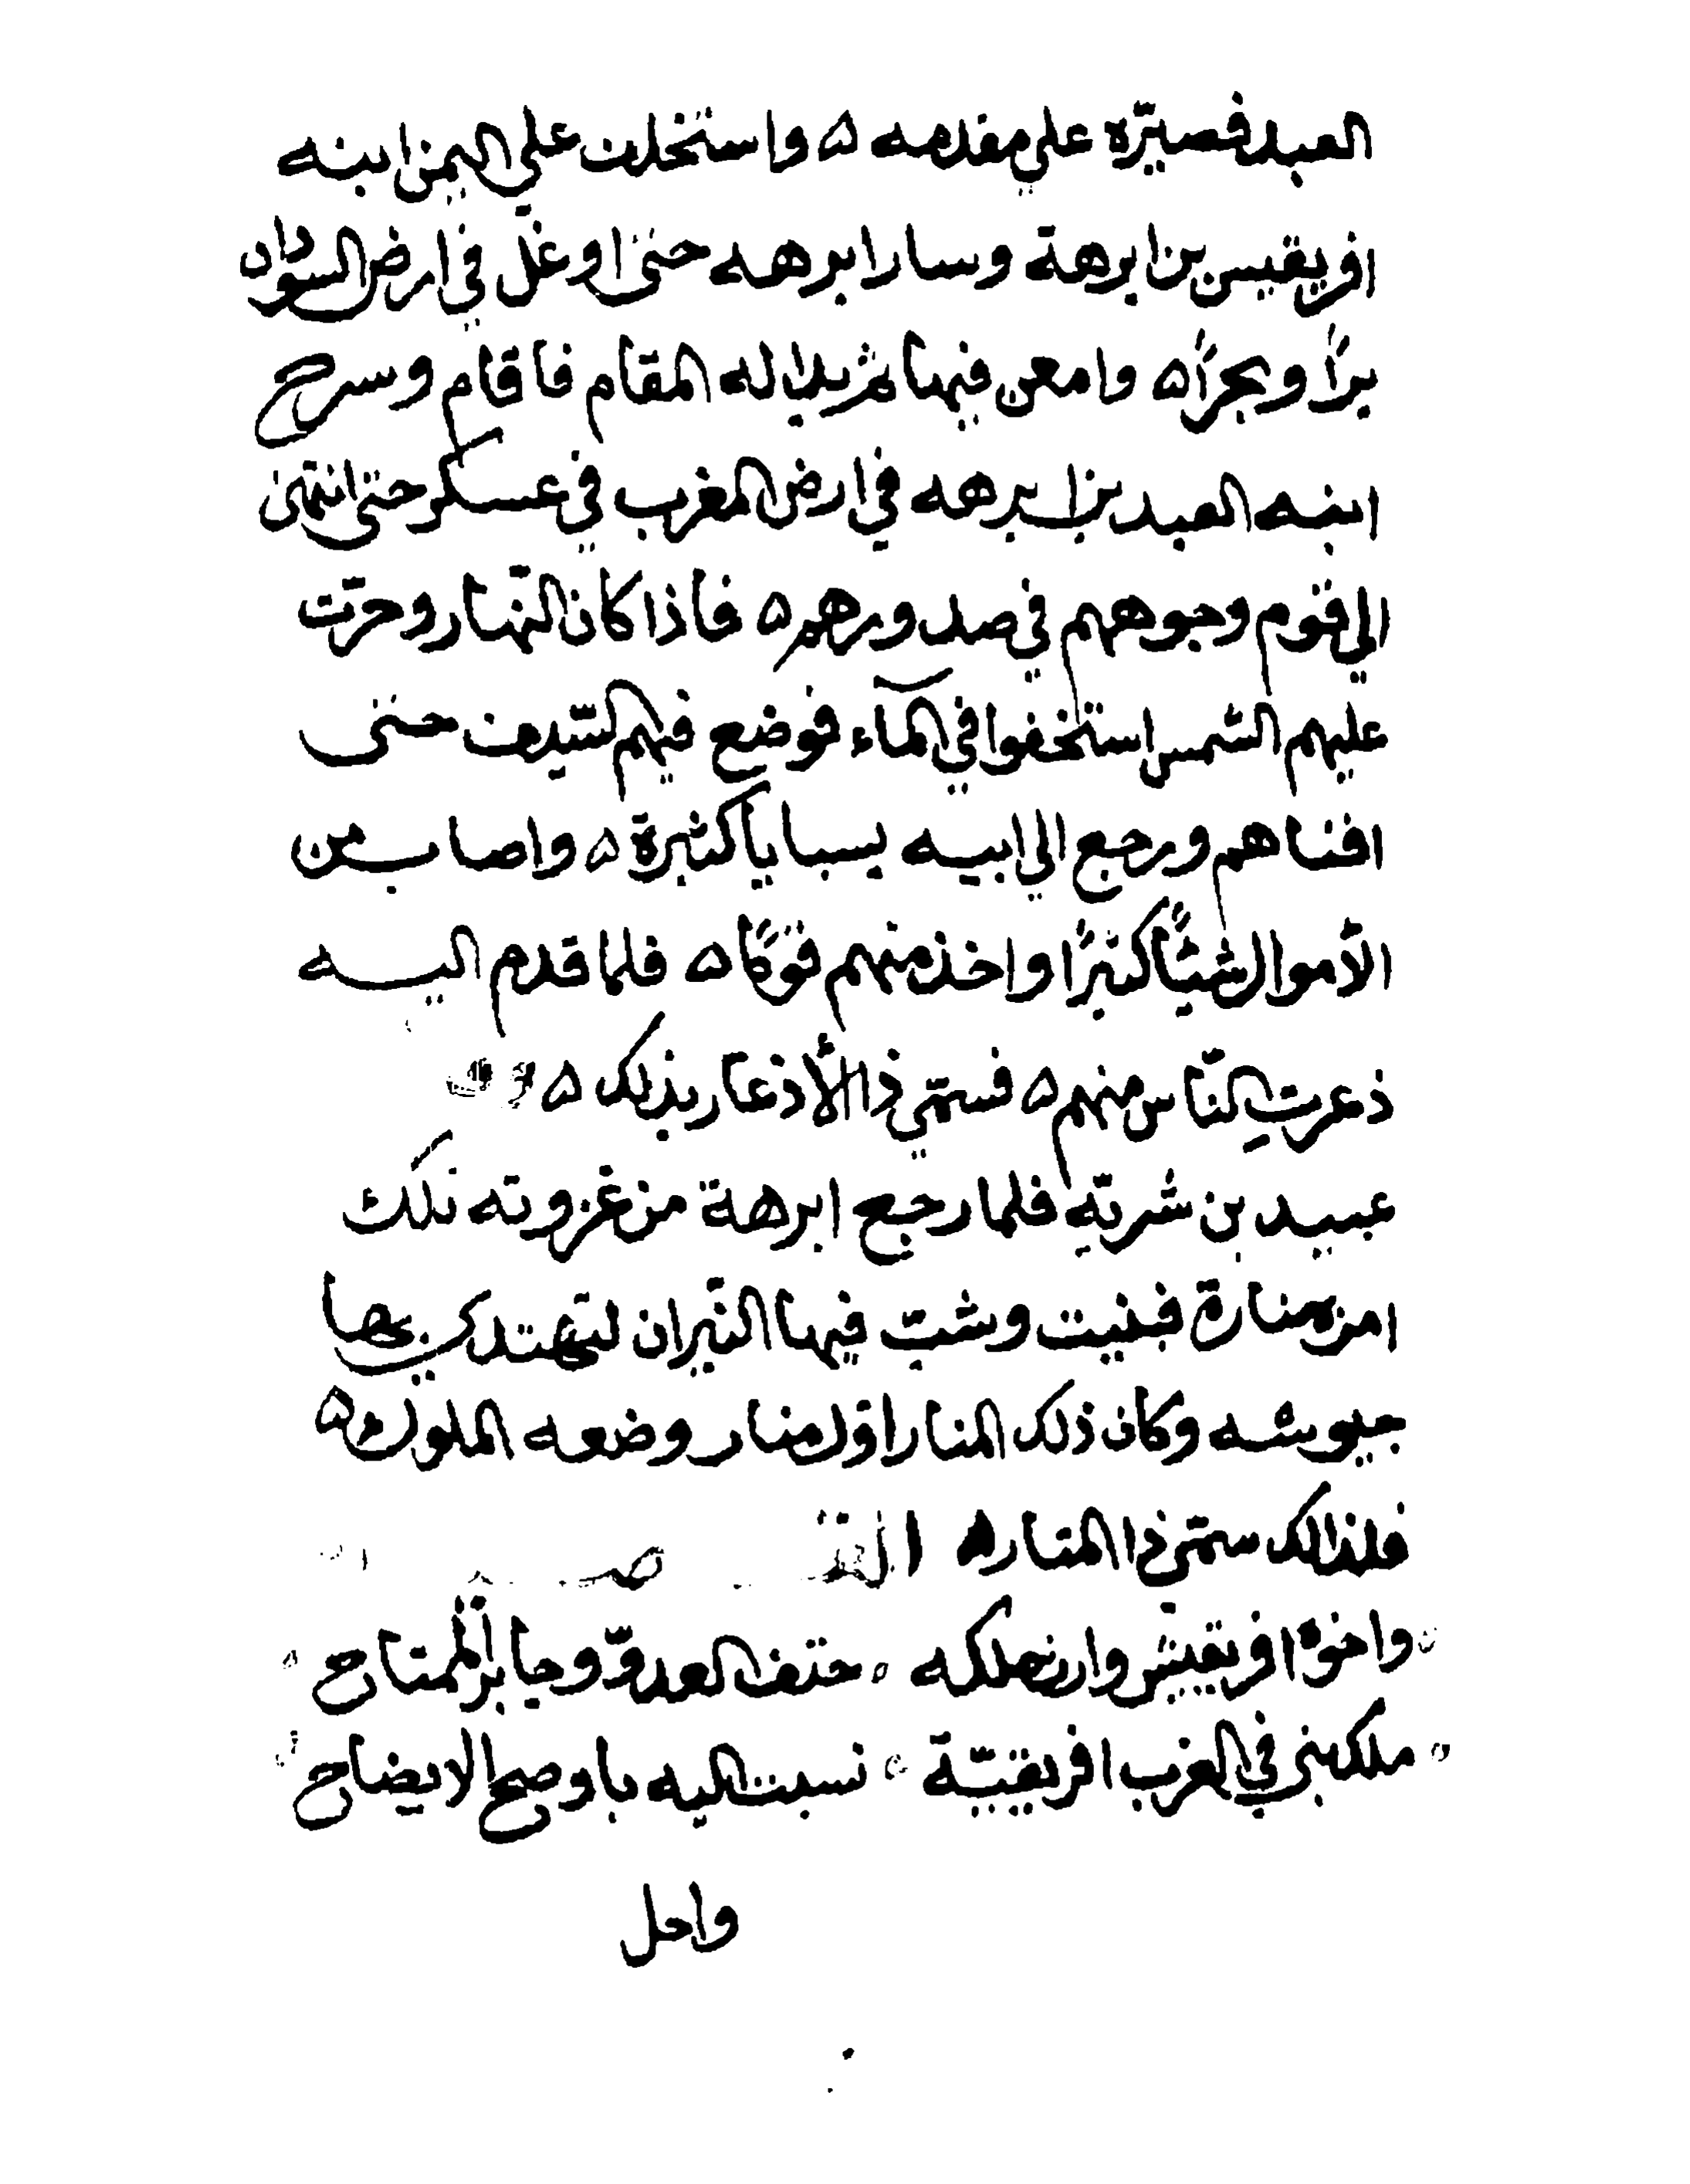 العبد فصيّره على مقدمه ۵ واستخلف علي اليمن ابنه
افريقيس بن ابرهة وسار ابرهه حتى اوغل في ارض السودان
برًا وبحرًا ۵ وامعن فيها ثم بدا له المقام فاقام وسرح
ابنه العبد بن ابرهه في ارض المغرب في عسكر حتى انتهى
الي قوم وجوههم في صدورهم ۵ فاذا كان النهار وحرّت
عليهم الشمس استخفوا في المآء فوضع فيهم السّيف حتى
افناهم ورجع الي ابيه بسبايا كثيرة ۵ واصاب من
الأموال شيئًا كثيرًا واخذ منهم قومًا ۵ فلما قدم اليه
ذعرت النّاس منهم ۵ فسمّي ذا الأذعار بذلك ۵ قال
عبيد بن شريّه فلما رجع ابرهة من غزوته تلك
امر بمنارة فبنيت وشب فيها النّيران ليهتدي بها
جيوشه وكان ذلك المنار اوّل منار وضعه الملوك ۵
فلذالك سمّى ذا المنار ۵
واخوه افريقيش وارث ملكه ۰ حتف العدوّ وجابر الممتاح
ملك بنى في الغرب افريقيّة ۰ نسبت اليه باوضح الايضاح
واحل